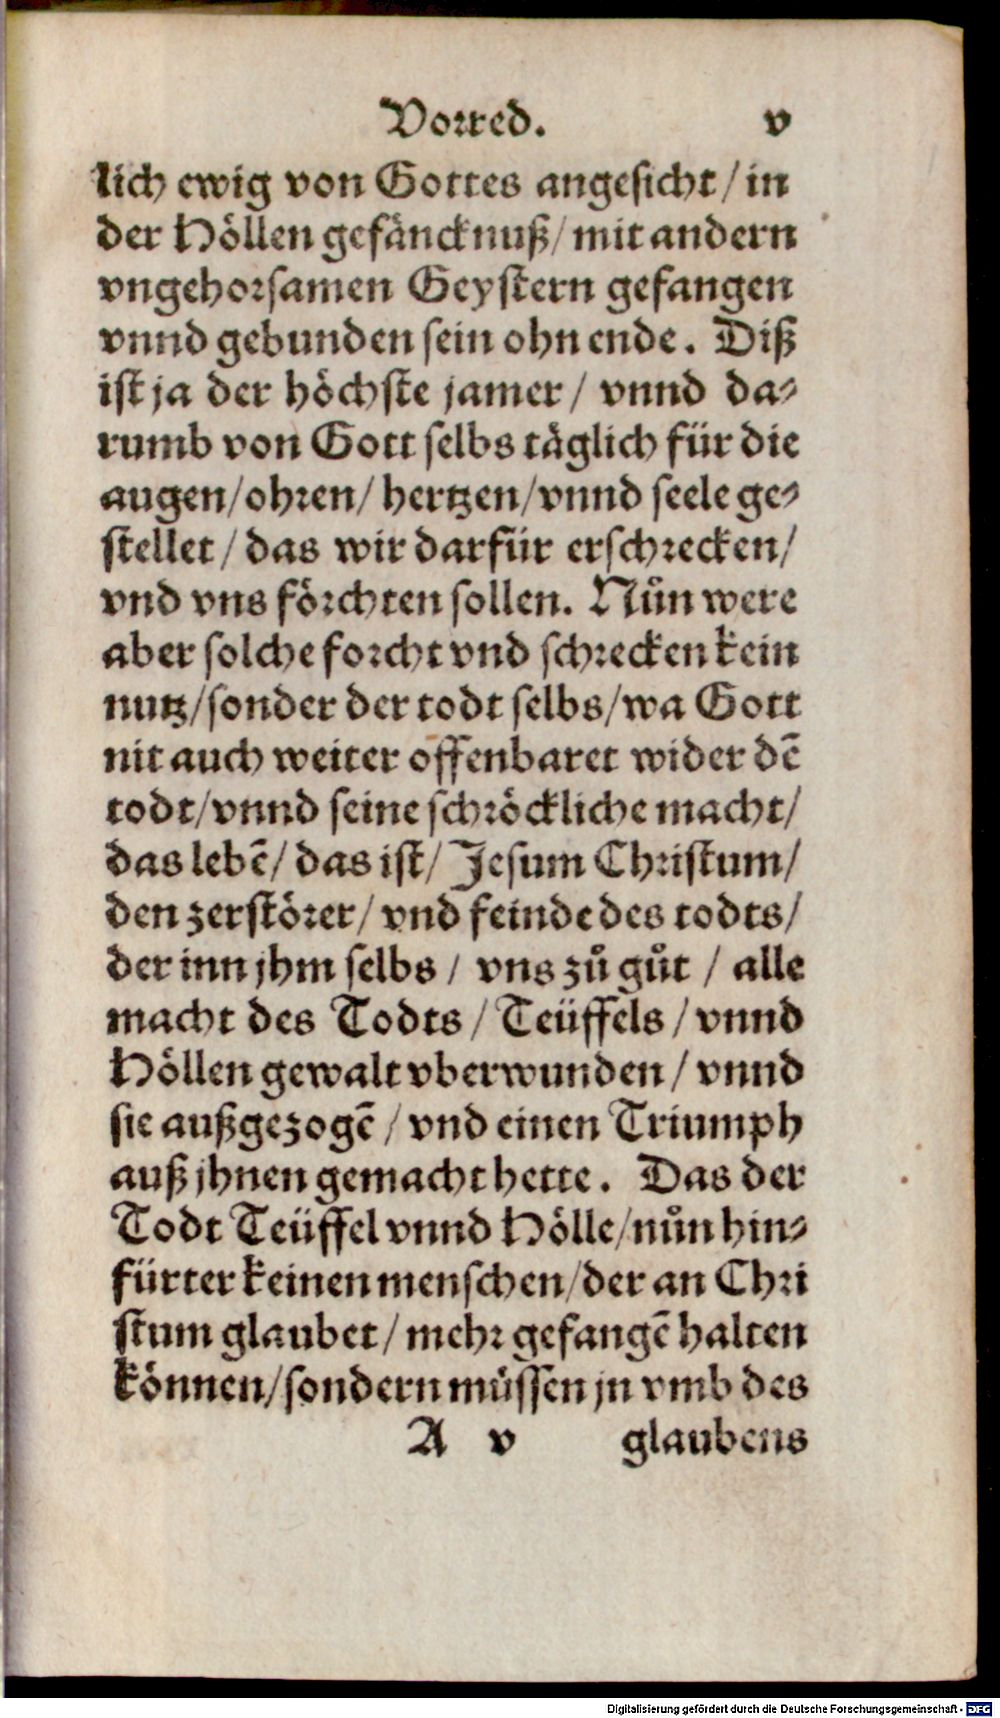 Vorred. v
lich ewig von Gottes angesicht/ in
der Höllen gefäncknuß/ mit andern
vngehorsamen Geystern gefangen
vnnd gebunden sein ohn ende. Diß
ist ja der höchste jamer/ vnnd da-
rumb von Gott selbs täglich für die
augen/ ohren/ hertzen/ vnnd seele ge-
stellet/ das wir darfür erschrecken/
vnd vns förchten sollen. Nůn were
aber solche forcht vnd schrecken kein
nutz/ sonder der todt selbs/ wa Gott
nit auch weiter offenbaret wider dē
todt/ vnnd seine schröckliche macht/
das lebē/ das ist/ Jesum Christum/
den zerstörer/ vnd feinde des todts/
der inn jhm selbs/ vns zů gůt/ alle
macht des Todts/ Teüffels/ vnnd
Höllen gewalt vberwunden/ vnnd
sie außgezogē/ vnd einen Triumph
auß jhnen gemacht hette. Das der
Todt Teüffel vnnd Hölle/ nůn hin-
fürter keinen menschen/ der an Chri
stum glaubet/ mehr gefangē halten
können/ sondern müssen jn vmb des
A v glaubens
Digitalisierung gefördert durch die Deutsche Forschungsgemeinschaft - DFG